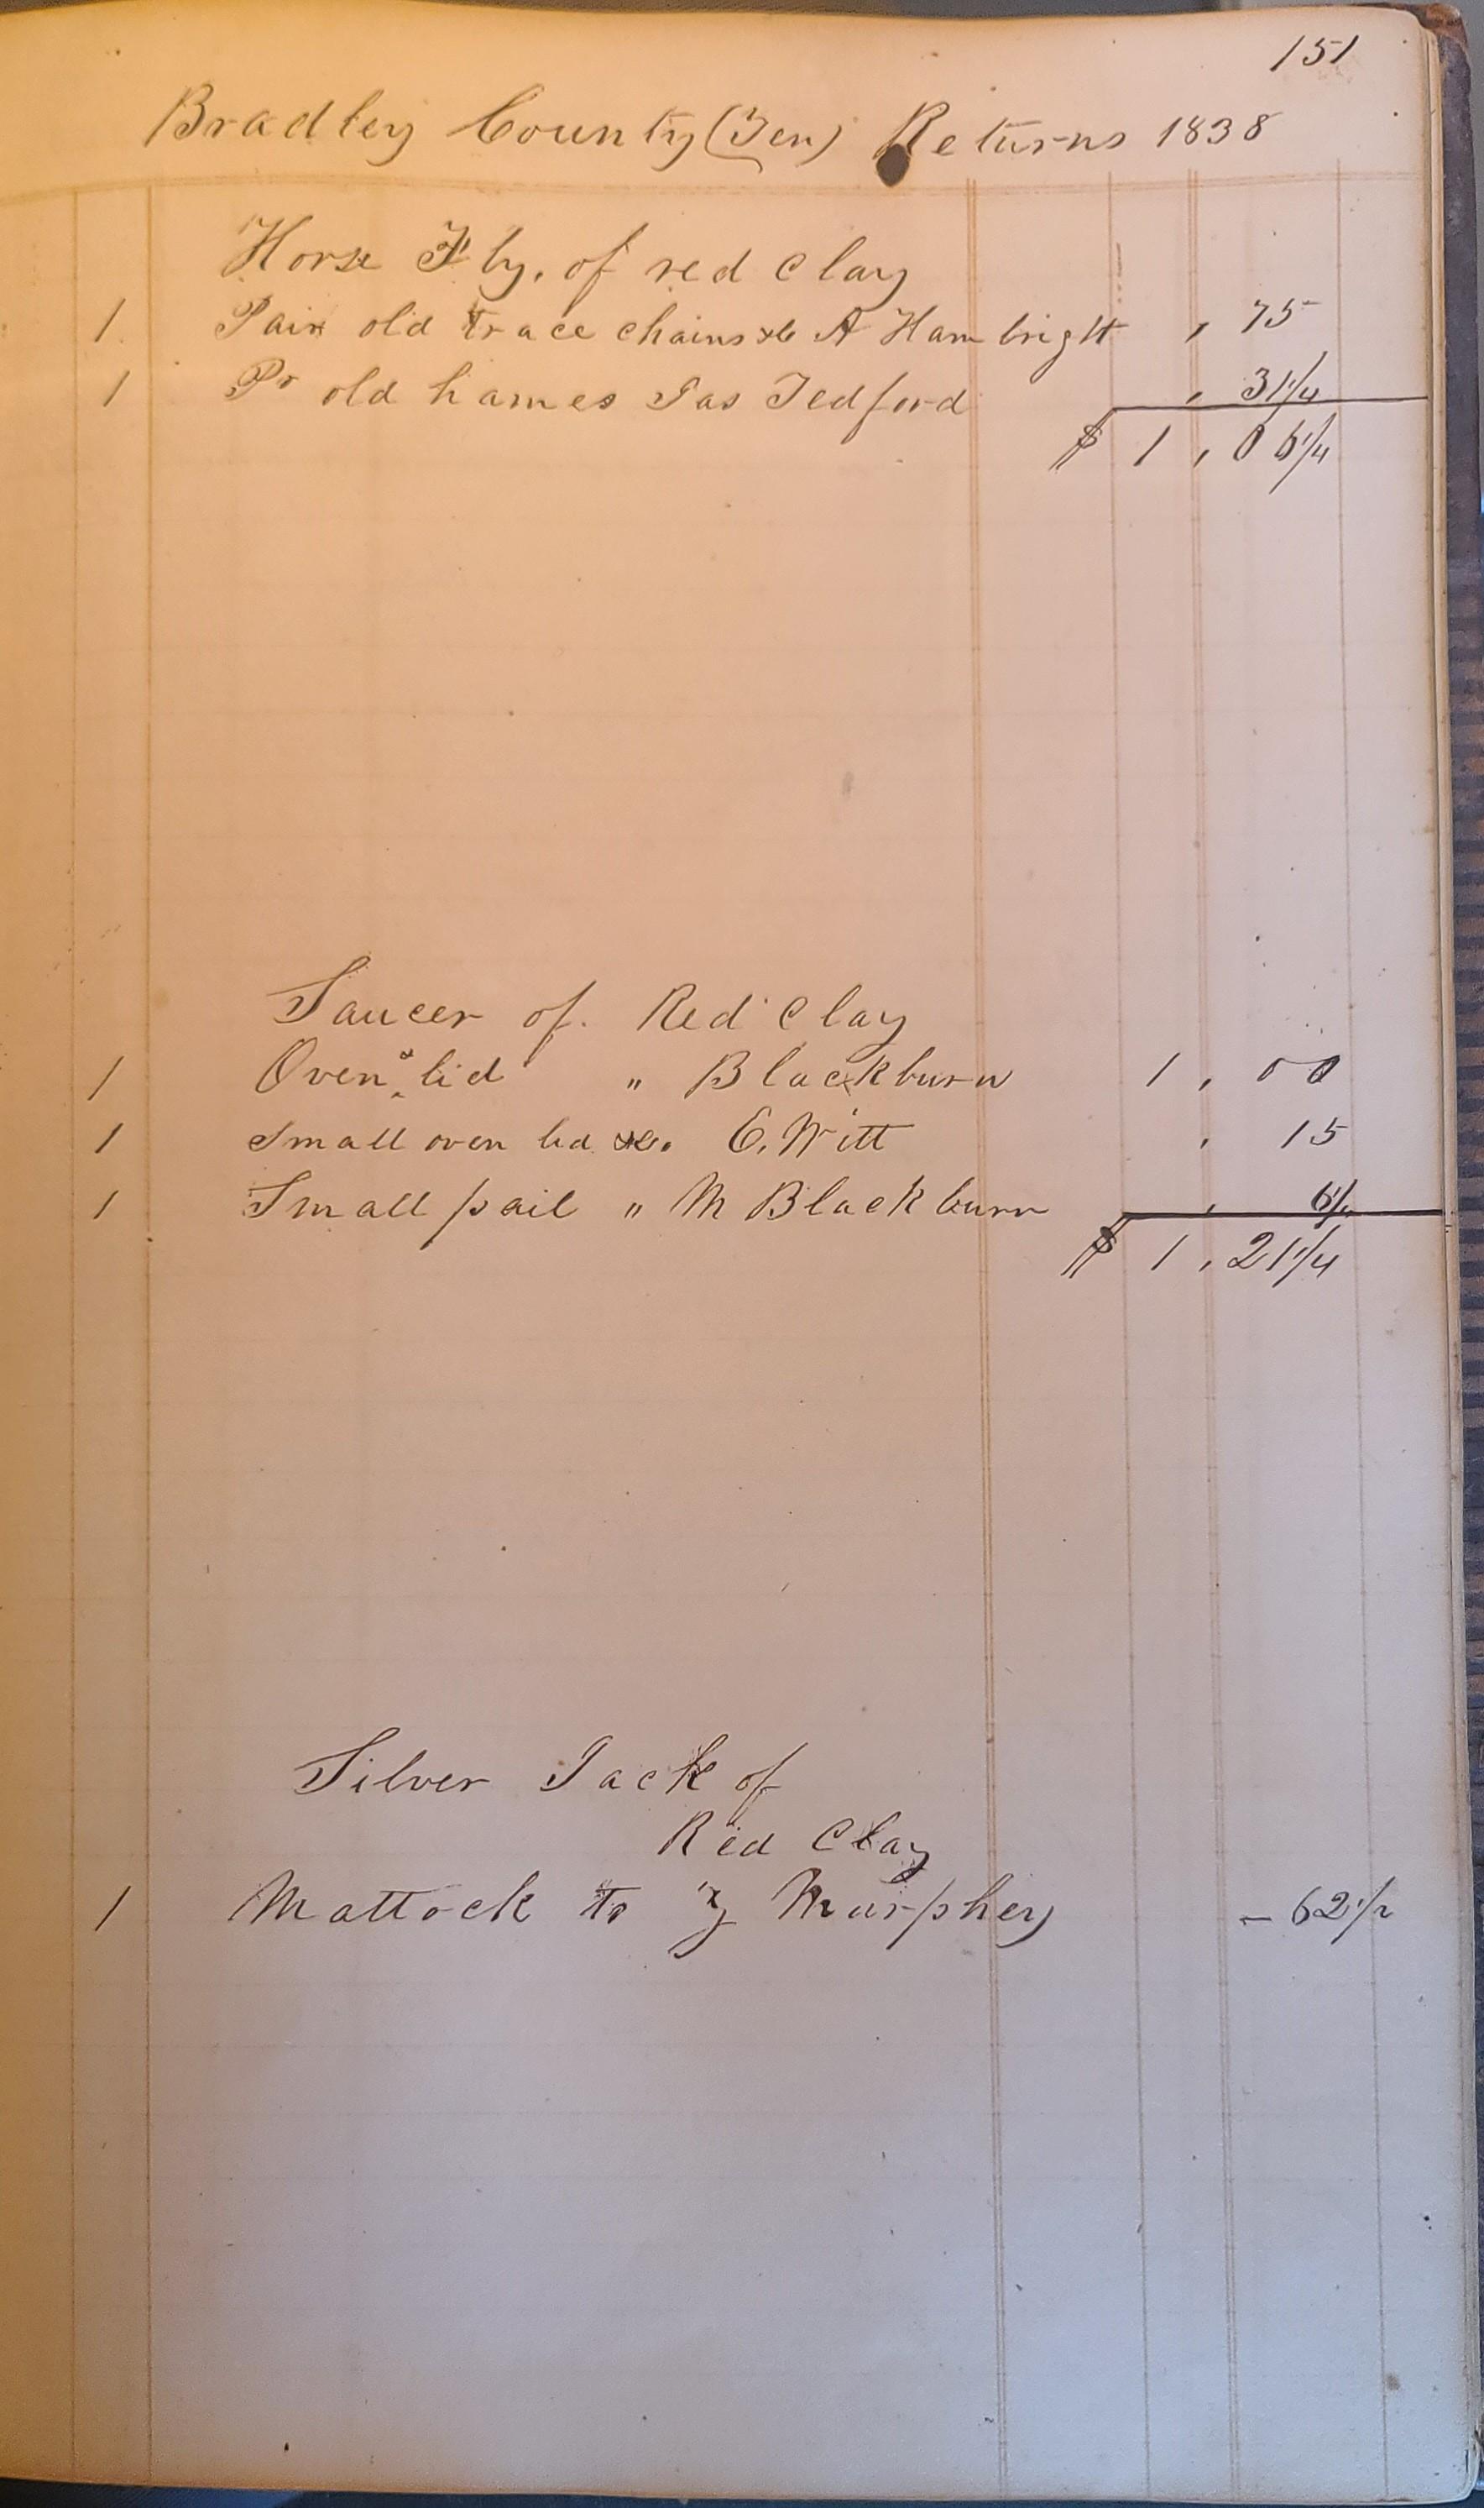 151
Bradley County (Ten) Returns 1838
Horse Fly. of red Clay
1 Pair old trace chains &c A Hambright , 75
1 Pr old hames Jas Tedford , 31 1/4
$ 1 , 06 1/4
Saucer of. Red Clay
1 Oven & lid " Blackburn 1 , 00
1 Small oven lid &c. E. Witt , 15
1 Small pail " M Blackburn , 6 1/4
$ 1 , 21 1/4
Silver Jack of
Red Clay
1 Mattock to Murphey – 62 1/2